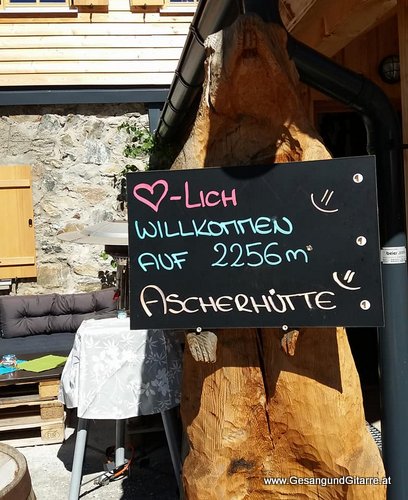 ♡-LICH
WILLKOMMEN
AUF 2256m
ASCHERHÜTTE
www.GesangundGitarre.at